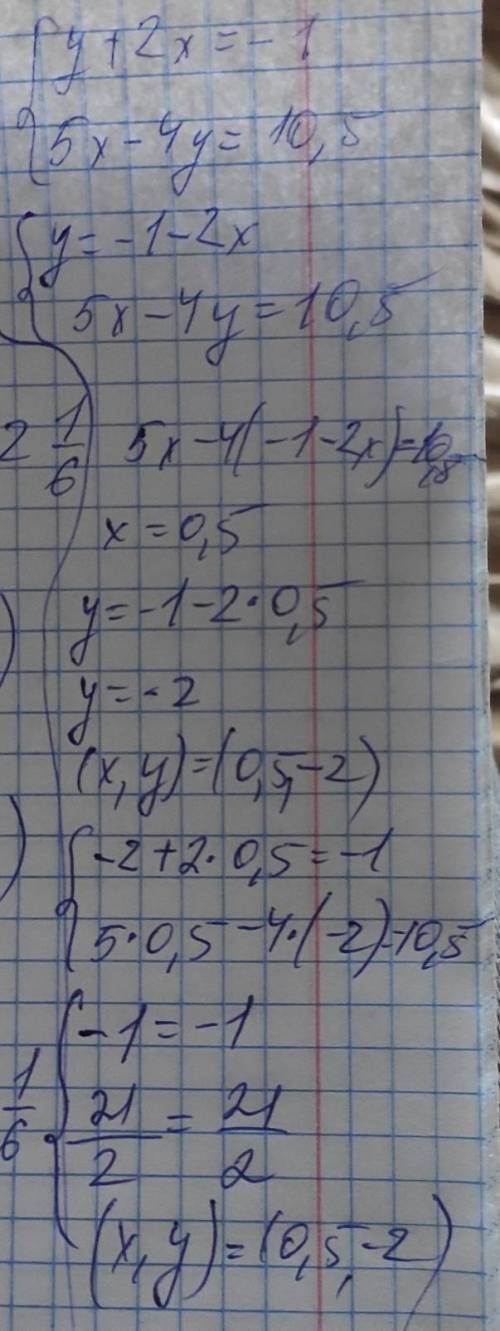 { y + 2x = -1
{ 5x - 4y = 10,5
{ y = -1 - 2x
5x - 4y = 10,5
2 1/6
5x - 4(-1 - 2x) = 10,5
x = 0,5
y = -1 - 2·0,5
y = -2
(x, y) = (0,5, -2)
{ -2 + 2·0,5 = -1
5·0,5 - 4·(-2) = 10,5
{ -1 = -1
1/6
21/2 = 21/2
(x, y) = (0,5, -2)